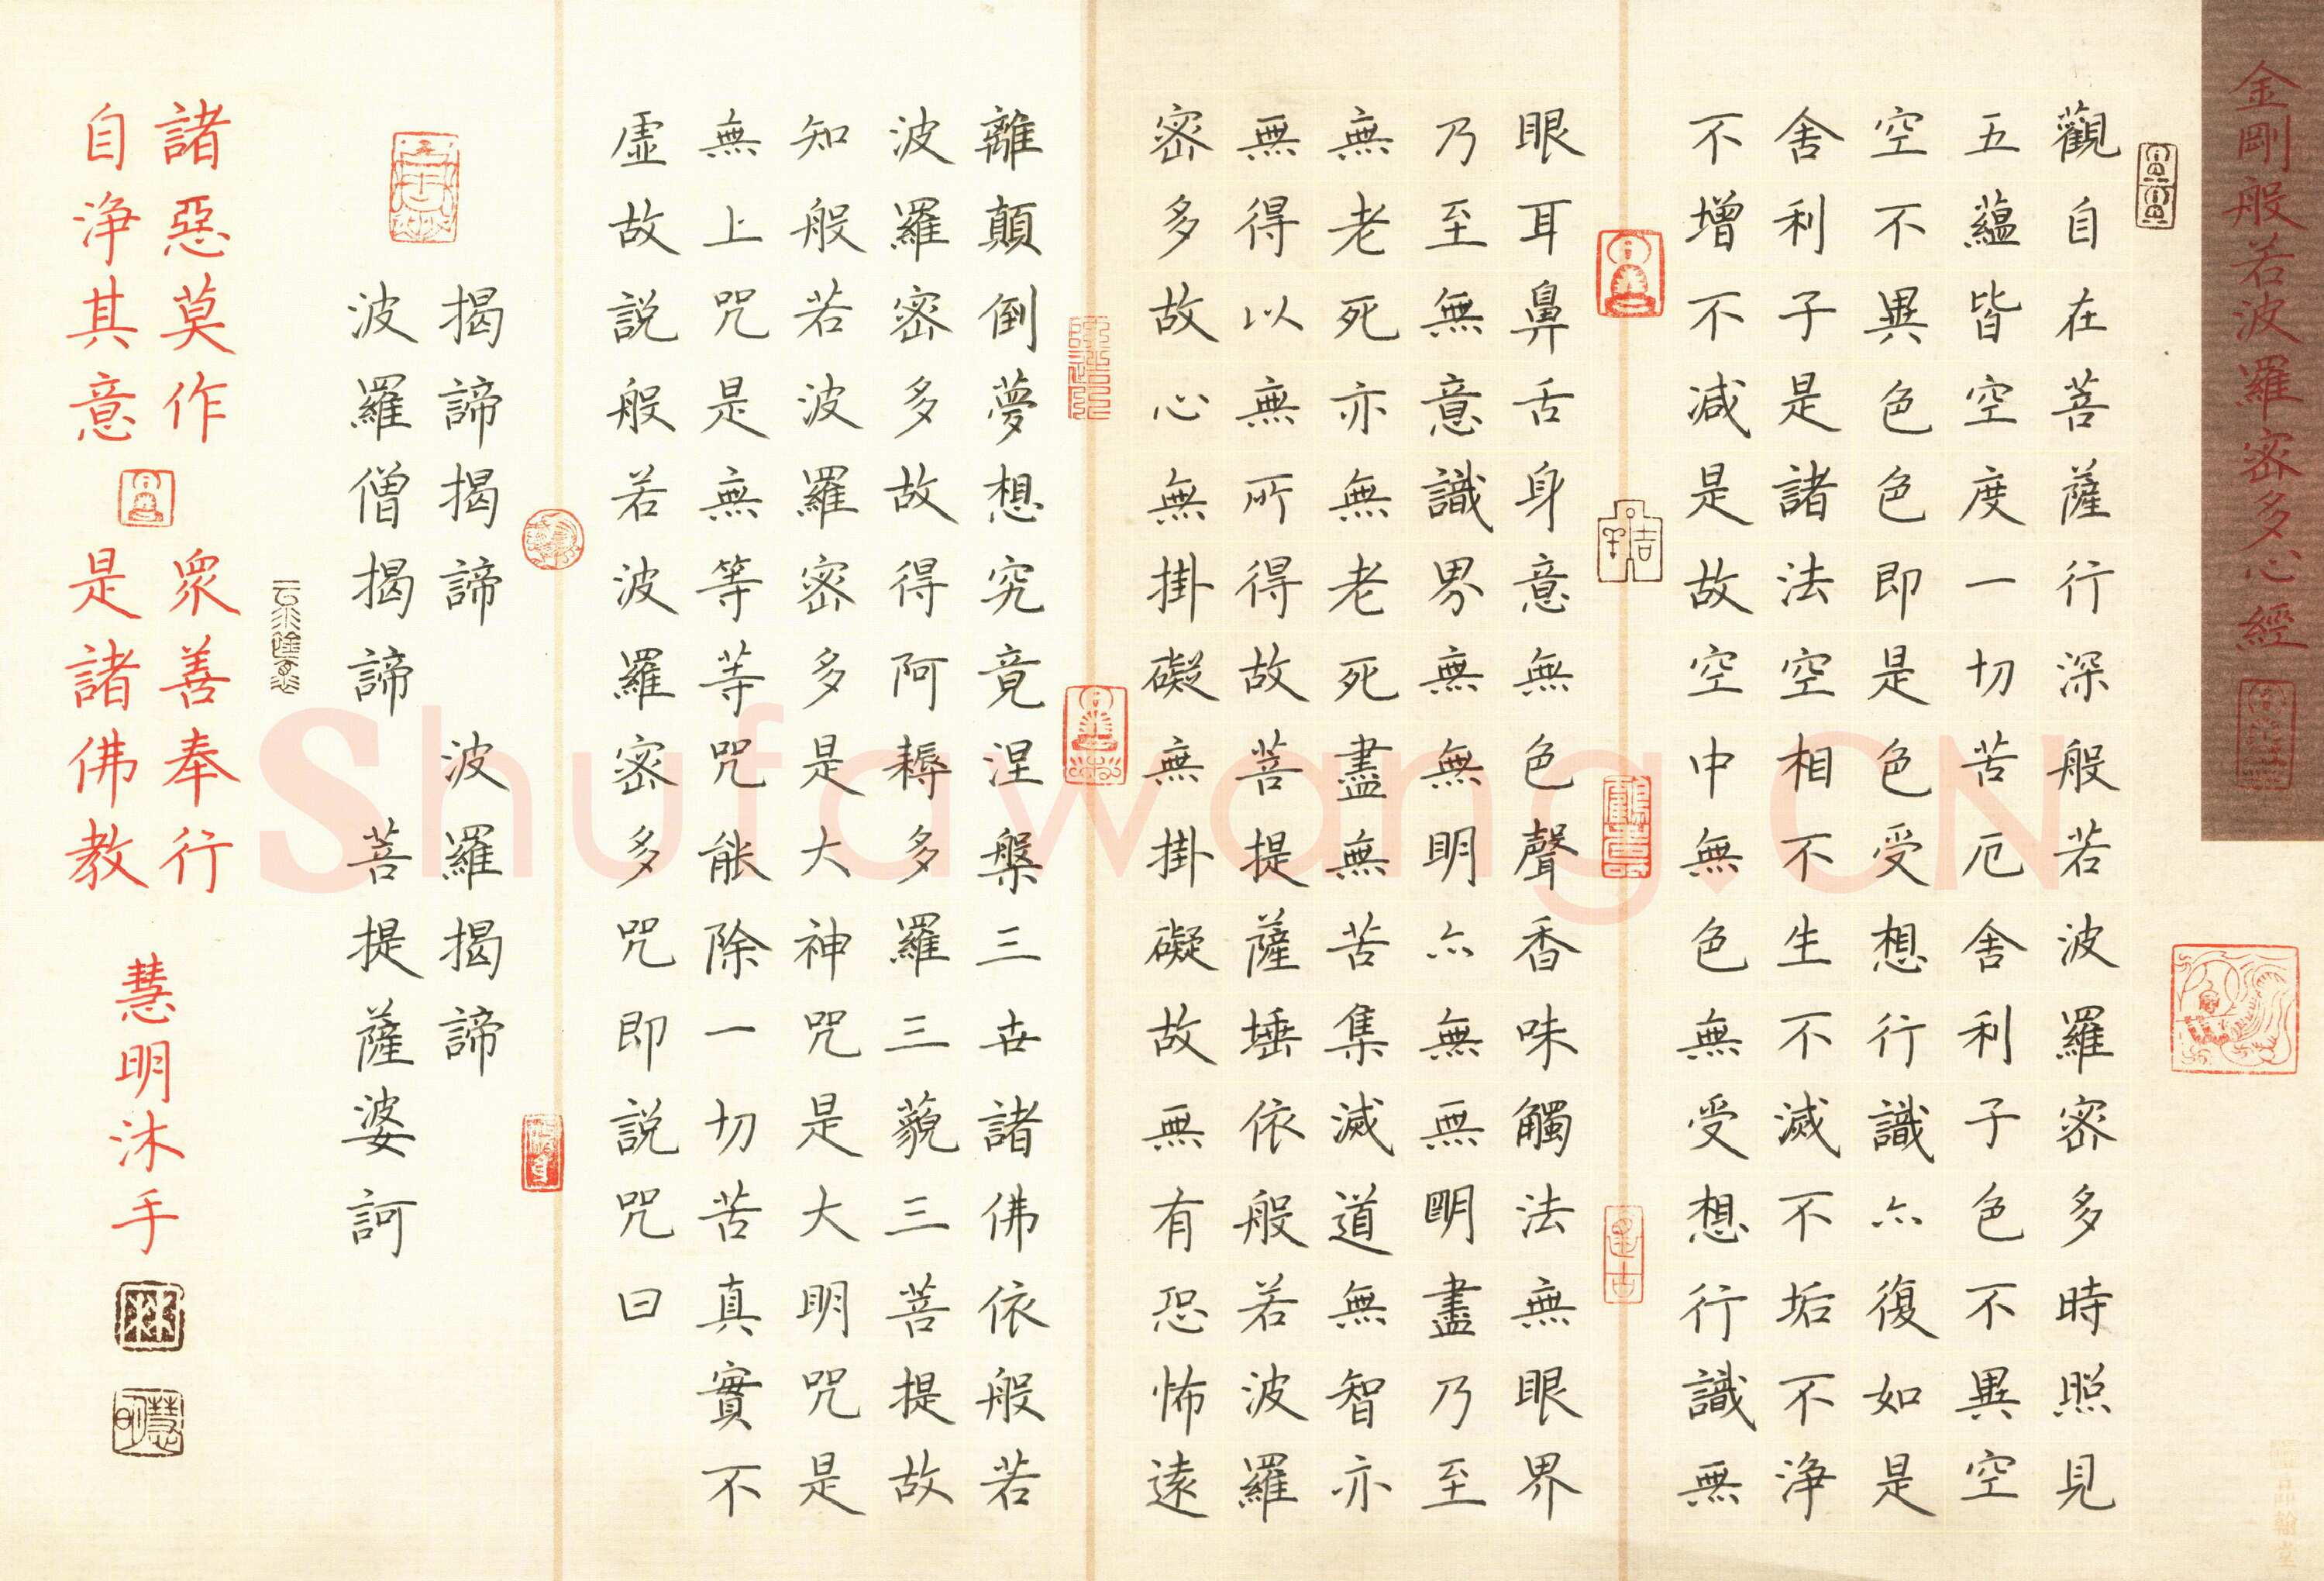 金剛般若波羅密多心經
觀自在菩薩行深般若波羅密多時照見
五蘊皆空度一切苦厄舍利子色不異空
空不異色色即是色受想行識亦復如是
舍利子是諸法空相不生不滅不垢不浄
不增不減是故空中無色無受想行識無
眼耳鼻舌身意無色聲香味觸法無眼界
乃至無意識界無無明亦無無明盡乃至
無老死亦無老死盡無苦集滅道無智亦
無得以無所得故菩提薩埵依般若波羅
密多故心無掛礙無掛礙故無有恐怖遠
離顛倒夢想究竟涅槃三世諸佛依般若
波羅密多故得阿耨多羅三藐三菩提故
知般若波羅密多是大神咒是大明咒是
無上咒是無等等咒能除一切苦真實不
虛故説般若波羅密多咒即説咒曰
揭諦揭諦 波羅揭諦
波羅僧揭諦 菩提薩婆訶
諸惡莫作 衆善奉行
自浄其意 是諸佛教
慧明沐手
Shufawang.CN